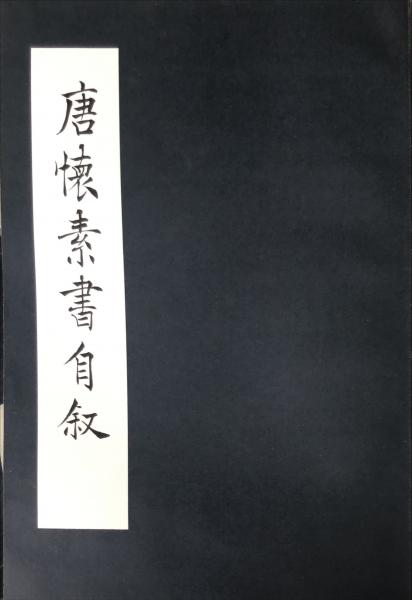 唐懷素書自叙